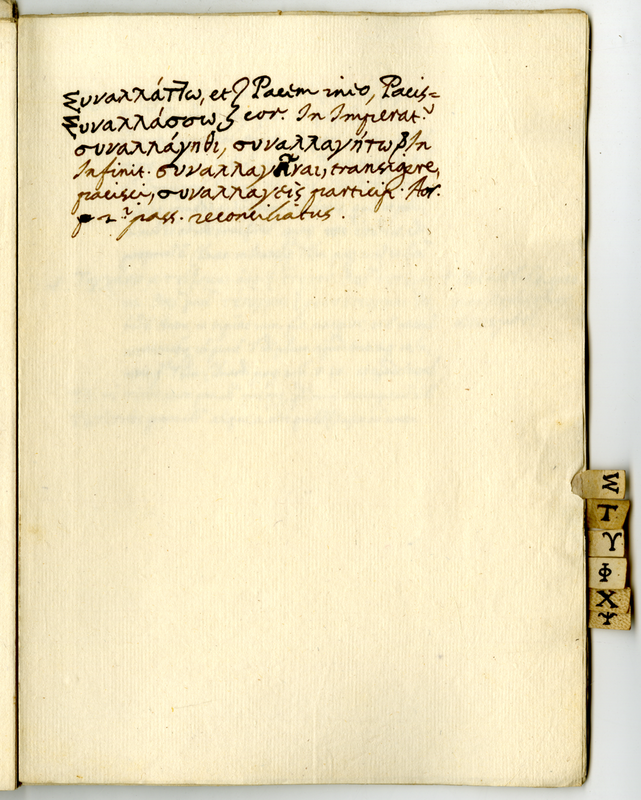 Συναλλάττω, et } Pacem ineo, Pacis=
Συναλλάσσω, } cor. In Imperat.
συναλλάγηθι, συναλλαγήτω, In
Infinit. συναλλαγῆναι, transigere,
pacisci, συναλλαγεὶς particip. Aor.
2.ͥ pass. reconciliatus.
Σ
Τ
Υ
Φ
Χ
Ψ